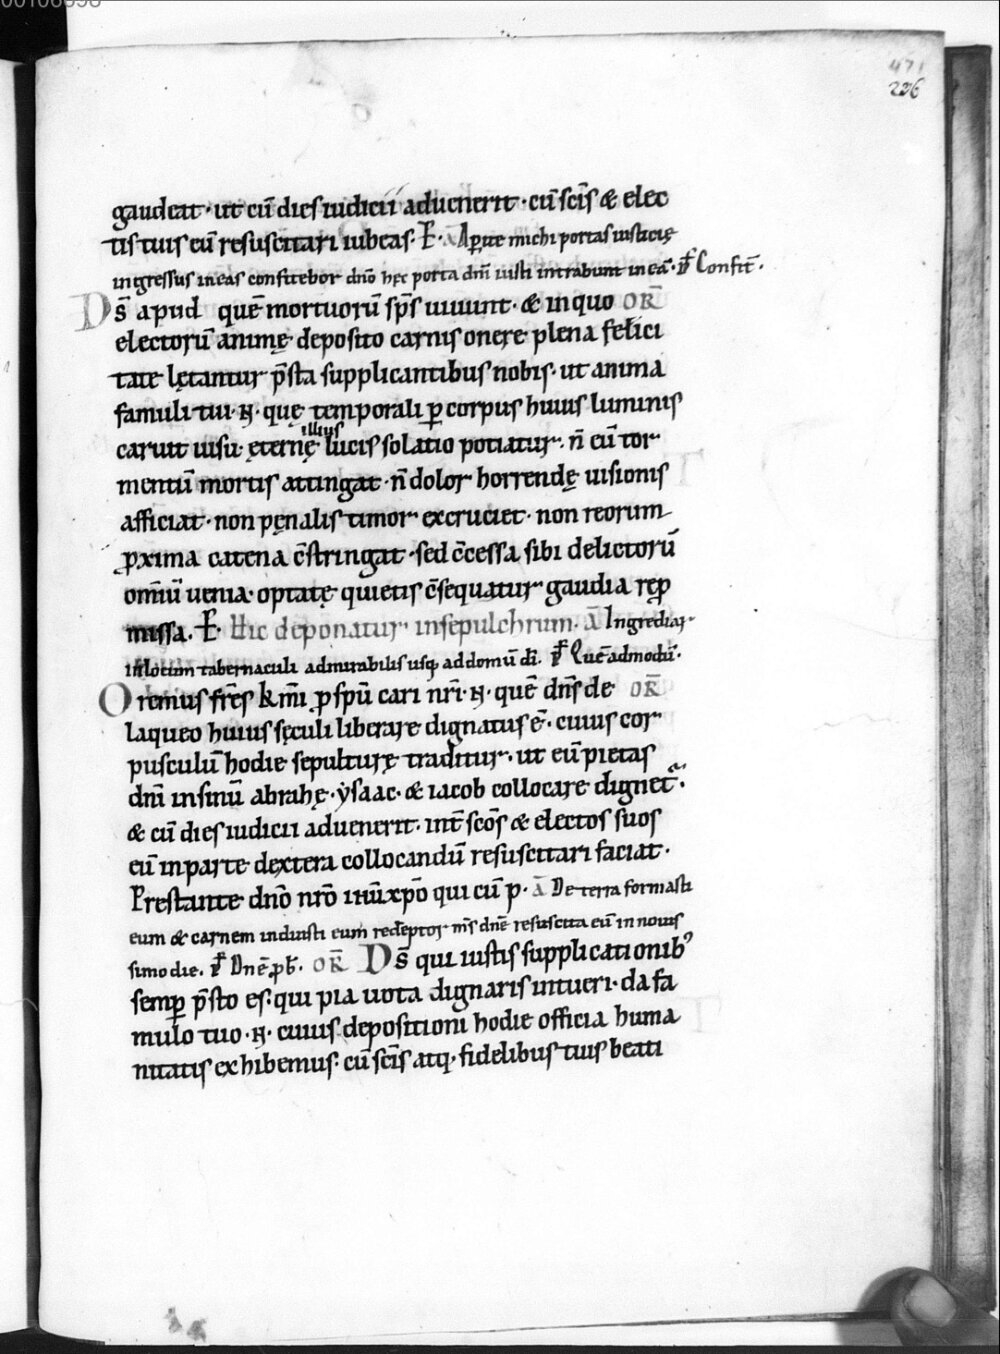 00106698
471
236
gaudeat · ut cū dies iudicii aduenerit · cū sc̄is & elec
tis tuis eū resuscitari iubeas. P̄. Ā Aperite michi portas iusticię
ingressus in eas confitebor dn̄o hęc porta dn̄i iusti intrabunt in eā. p̄s Confit̄.
Ds̄ apud quē mortuorū sp̄s uiuunt · & in quo OR̄
electorū animę deposito carnis onere plena felici
tate lętantur p̄sta supplicantibus nobis · ut anima
famuli tui · N · quę temporali ꝑ corpus huius luminis
caruit uisu · ęternę illius lucis solatio potiatur · n̄ eū tor
mentū mortis attingat · n̄ dolor horrendę uisionis
afficiat · non pęnalis timor excruciet · non reorum
ꝓxima catena c̄stringat · sed c̄cessa sibi delictorū
om̄iū uenia · optatę quietis c̄sequatur gaudia rep̄
missa. P̄. Hic deponatur in sepulchrum. Ā Ingrediar
in locum tabernaculi admirabilis usq; ad domū dī. p̄s Quēadmodū.
Oremus fr̄es km̄i ꝓ sp̄u cari nr̄i · N · quē dn̄s de OR̄
laqueo huius sęculi liberare dignatus ē · cuius cor
pusculū hodie sepulturę traditur · ut eū pietas
dn̄i in sinū abrahę · ysaac · & iacob collocare dignet̄ ·
& cū dies iudicii aduenerit · int̄ sc̄os & electos suos
eū in parte dextera collocandū resuscitari faciat ·
Prestante dn̄o nr̄o ihū xp̄o qui cū p · ā De terra formasti
eum & carnem induisti eum redēptor m̄s dn̄e resuscita eū in nouis
simo die. p̄s Dn̄e ꝓb̄. OR̄ Ds̄ qui iustis supplicationib᾽
semꝑ p̄sto es · qui pia uota dignaris intueri · da fa
mulo tuo · N · cuius depositioni hodie officia huma
nitatis exhibemus · cū sc̄is atq; fidelibus tuis beati